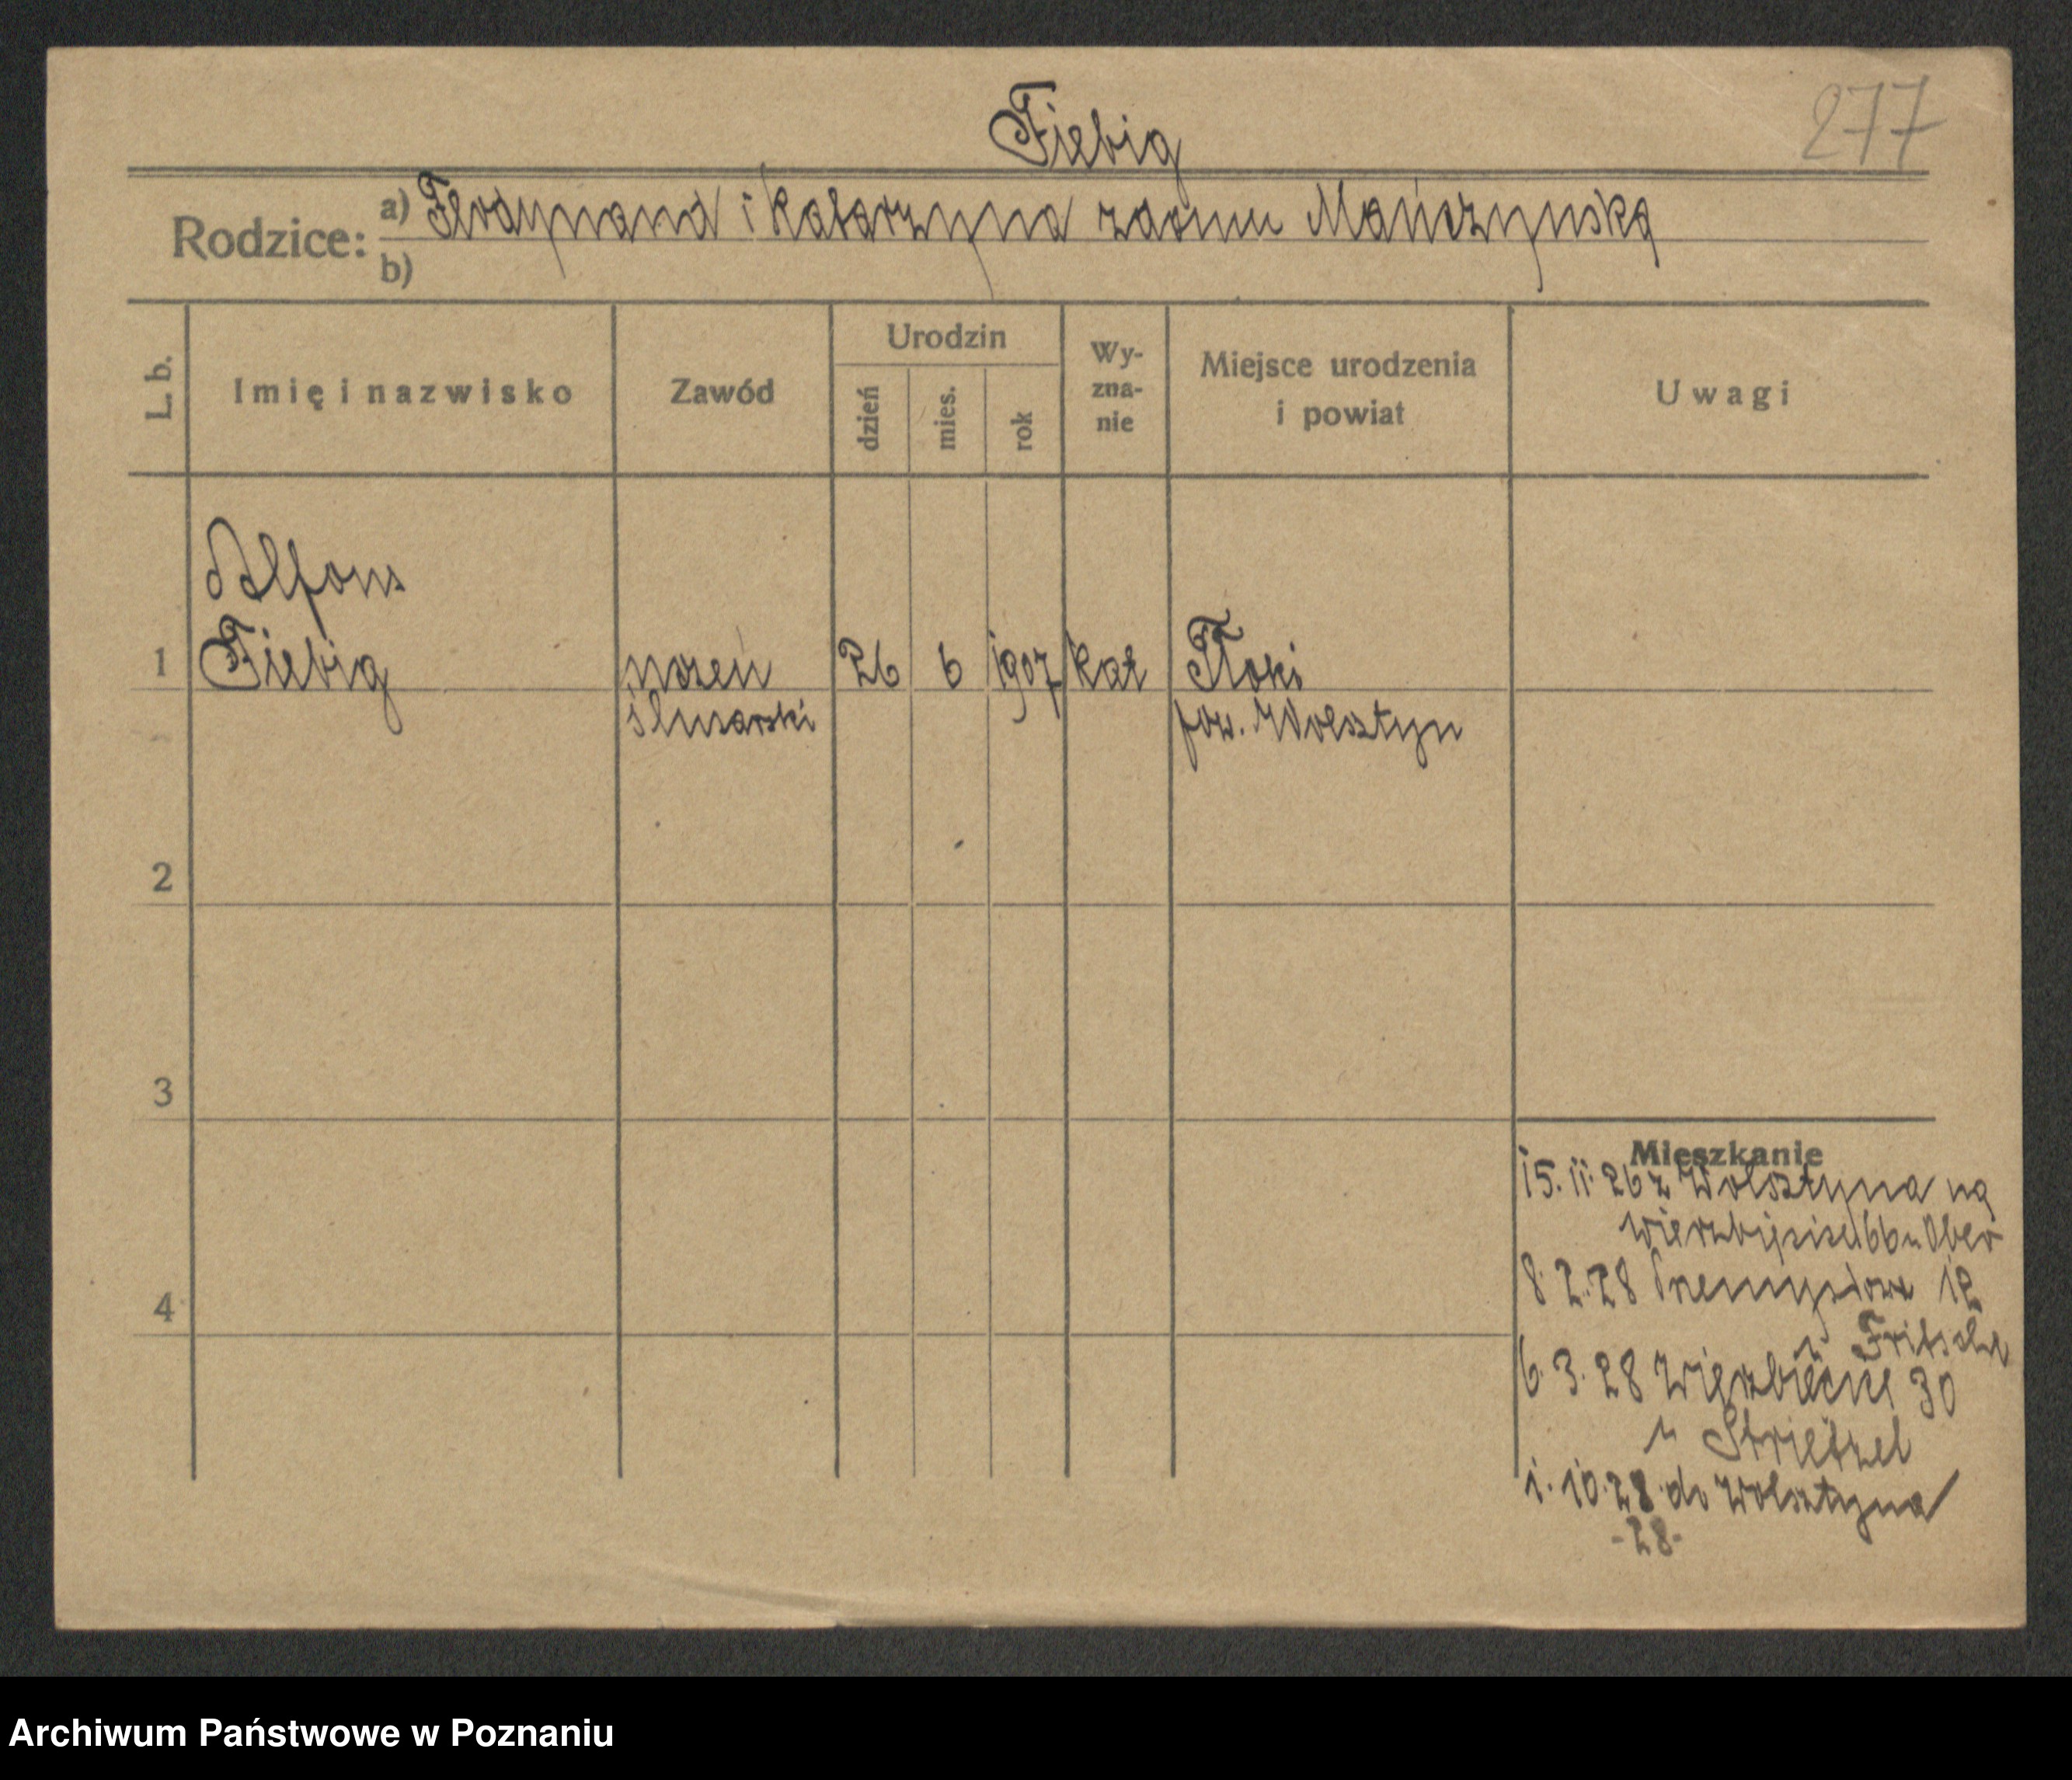 277
Fiebig
Rodzice: a) Ferdynand i Katarzyna zdomu Mańczyńska
b)
L. b.
Imię i nazwisko
Zawód
Urodzin
dzień
mies.
rok
Wy-
zna-
nie
Miejsce urodzenia
i powiat
Uwagi
Alfons
1 Fiebig uczeń 26 6 1907 kat Tłoki
ślusarski pow. Wolsztyn
2
3
4
Mieszkanie
15. 11. 26 z Wolsztyna na
Wierzbięcice 66 u Ober
8. 2. 28 Przemysłowa 12
u Fritsche
6. 3. 28 Wierzbiecice 30
u Strietzel
1. 10. 28 do Wolsztyna
-28-
Archiwum Państwowe w Poznaniu